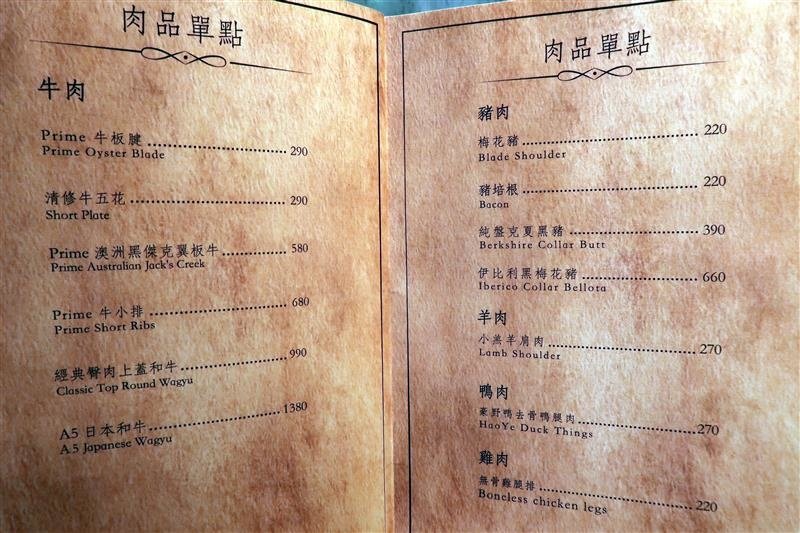 肉品單點
牛肉
Prime 牛板腱 290
Prime Oyster Blade
清修牛五花 290
Short Plate
Prime 澳洲黑傑克翼板牛 580
Prime Australian Jack's Creek
Prime 牛小排 680
Prime Short Ribs
經典臀肉上蓋和牛 990
Classic Top Round Wagyu
A5 日本和牛 1380
A5 Japanese Wagyu
肉品單點
豬肉
梅花豬 220
Blade Shoulder
豬培根 220
Bacon
純盤克夏黑豬 390
Berkshire Collar Butt
伊比利黑梅花豬 660
Iberico Collar Bellota
羊肉
小羔羊肩肉 270
Lamb Shoulder
鴨肉
豪野鴨去骨鴨腿肉 270
HaoYe Duck Things
雞肉
無骨雞腿排 220
Boneless chicken legs